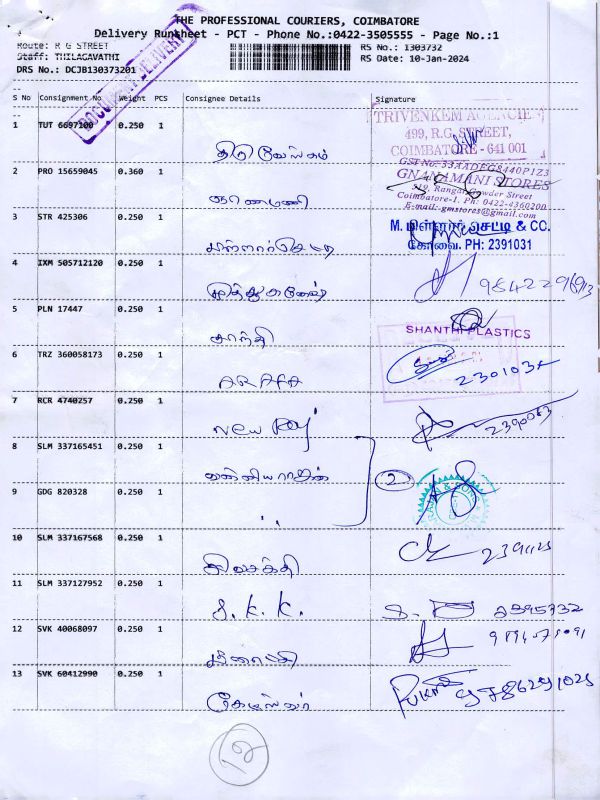 THE PROFESSIONAL COURIERS, COIMBATORE
Delivery Runsheet - PCT - Phone No.:0422-3505555 - Page No.:1
Route: R G STREET RS No.: 1303732
Staff: THILAGAVATHI RS Date: 10-Jan-2024
DRS No.: DCJB130373201
DOCUMENT DELIVERY
S No Consignment No Weight PCS Consignee Details Signature
1 TUT 6697100 0.250 1
TRIVENKEM AGENCIE
499, R.G. STREET,
COIMBATORE - 641 001
GST No: 33AADFG8440P1Z3
2 PRO 15659045 0.360 1 ஞானமணி
GNANAMANI STORES
519, Rangai Gowder Street
Coimbatore-1. Ph: 0422-4360200
E-mail:-gmstores@gmail.com
3 STR 425306 0.250 1
M. மிள்ளார் செட்டி & CC.
கோவை. PH: 2391031
4 IXM 505712120 0.250 1
5 PLN 17447 0.250 1 சாந்தி
SHANTHI PLASTICS
6 TRZ 360058173 0.250 1 ARAFA 2301034
7 RCR 4740257 0.250 1 New Raj 2390063
8 SLM 337165451 0.250 1 வன்னியராஜன் 2
9 GDG 820328 0.250 1 ,,
10 SLM 337167568 0.250 1 சிவசக்தி
11 SLM 337127952 0.250 1 S.K.K. 2395732
12 SVK 40068097 0.250 1
13 SVK 60412990 0.250 1 9786291025